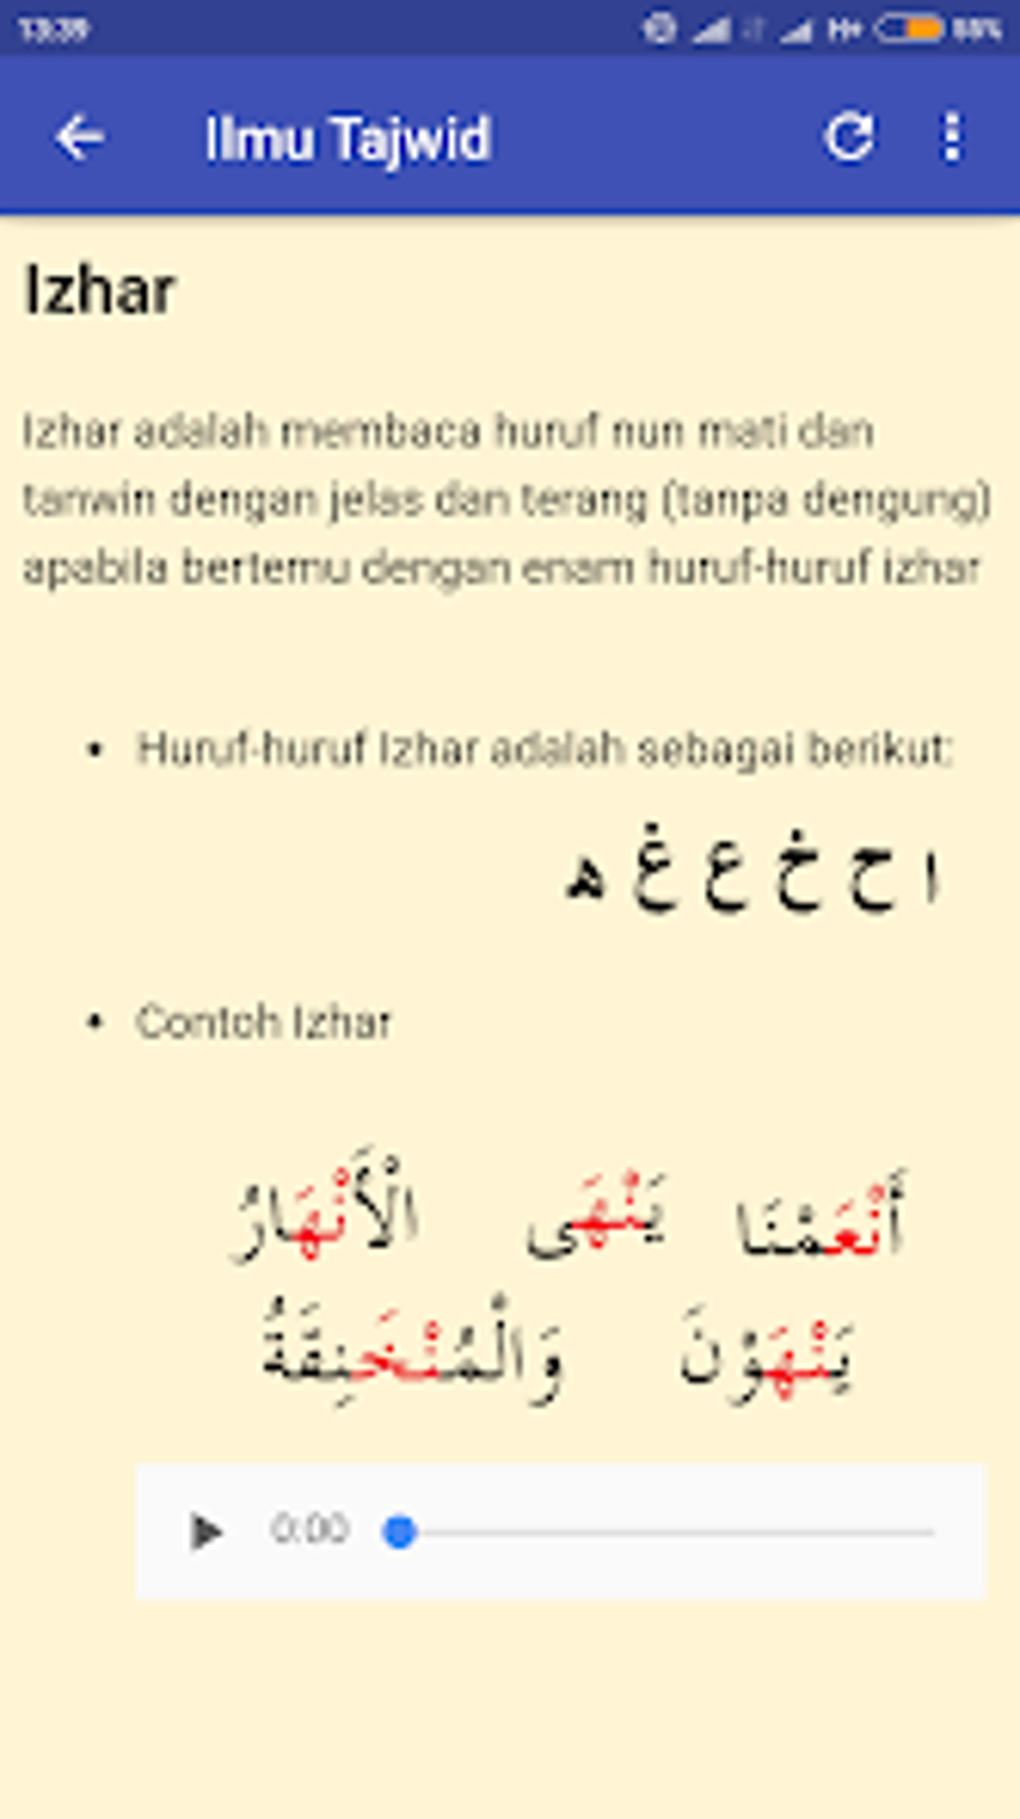 13:39 H+ 55%
Ilmu Tajwid
Izhar
Izhar adalah membaca huruf nun mati dan
tanwin dengan jelas dan terang (tanpa dengung)
apabila bertemu dengan enam huruf-huruf izhar
• Huruf-huruf Izhar adalah sebagai berikut:
ا ح خ ع غ ه
• Contoh Izhar
أَنْعَمْنَا يَنْهَى الْأَنْهَارُ
يَنْهَوْنَ وَالْمُنْخَنِقَةُ
0:00